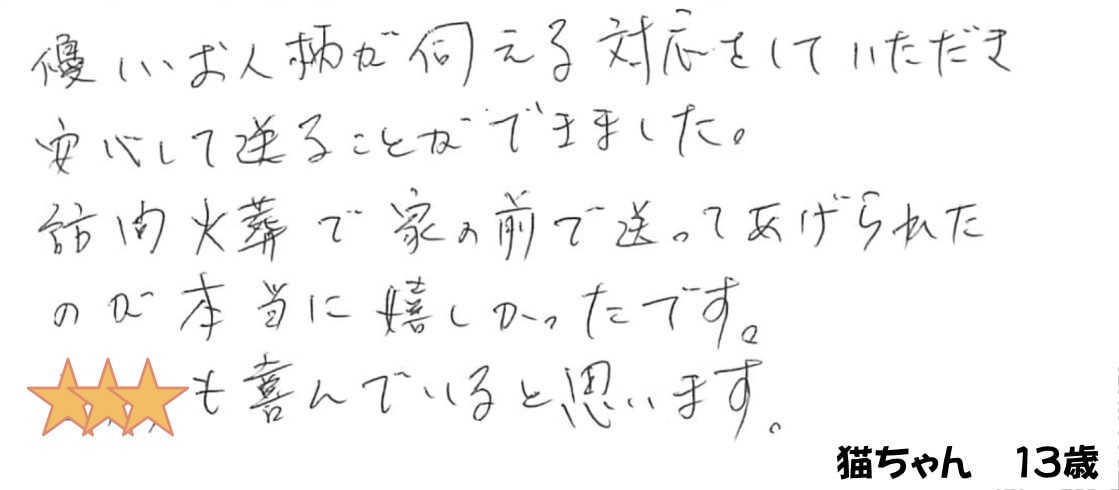 優しいお人柄が伺える対応をしていただき
安心して送ることができました。
訪問火葬で家の前で送ってあげられた
のが本当に嬉しかったです。
も喜んでいると思います。
猫ちゃん 13歳